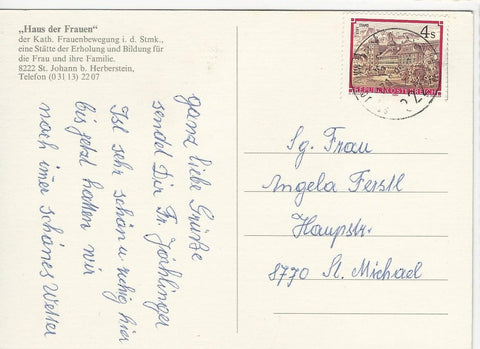 „Haus der Frauen“
der Kath. Frauenbewegung i. d. Stmk.,
eine Stätte der Erholung und Bildung für
die Frau und ihre Familie.
8222 St. Johann b. Herberstein,
Telefon (0 31 13) 22 07
ganz liebe Grüße
sendet Dir Fr.
Ist sehr schön u. ruhig hier
bis jetzt hatten wir
noch imer schönes Wetter
4 S
REPUBLIK ÖSTERREICH
Sg. Frau
Angela Ferstl
Hauptstr.
8770 St. Michael